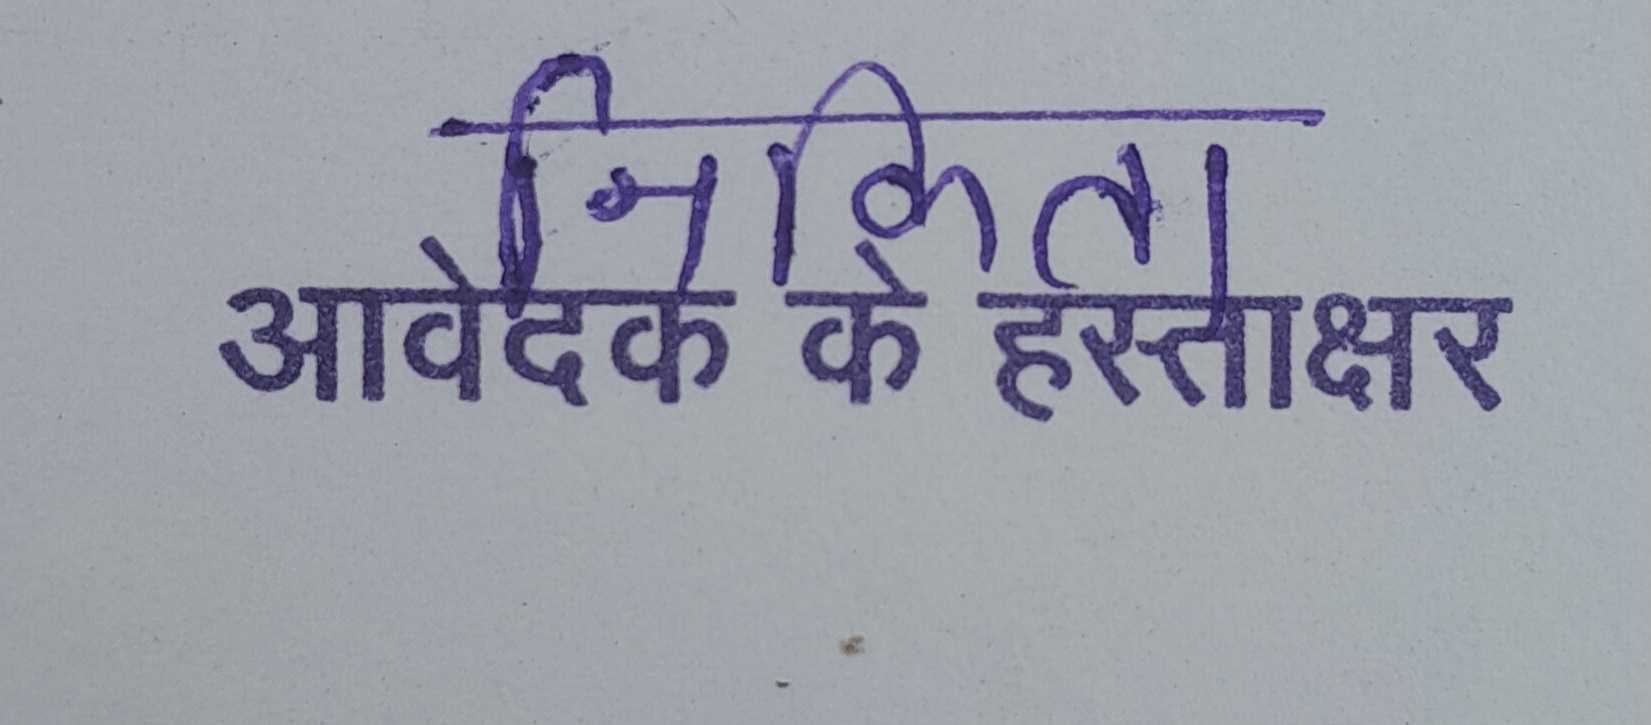 निकिता
आवेदक के हस्ताक्षर